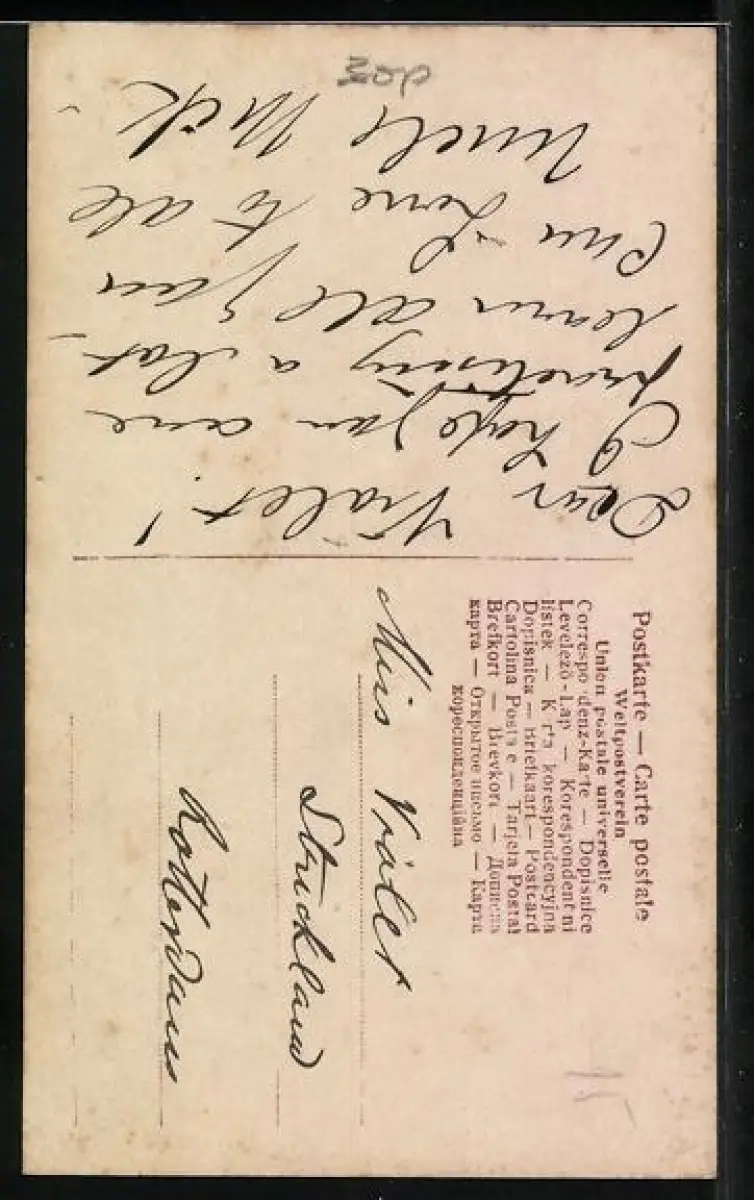 Dear Violet!
I hope you are
practising a lot -
learn all you
can. Love to all
Uncle Mick -
Postkarte — Carte postale
Weltpostverein
Union postale universelle
Correspondenz-Karte — Dopisnice
Levelező-Lap — Korespondentni
listek — Karta korespondencyjna
Dopisnica — Briefkaart — Postcard
Cartolina Postale — Tarjeta Postal
Brefkort — Brevkort — Дописна
карта — Открытое письмо — Карта
кореспонденційна
Miss Violet
Strickland
Rotterdam
15